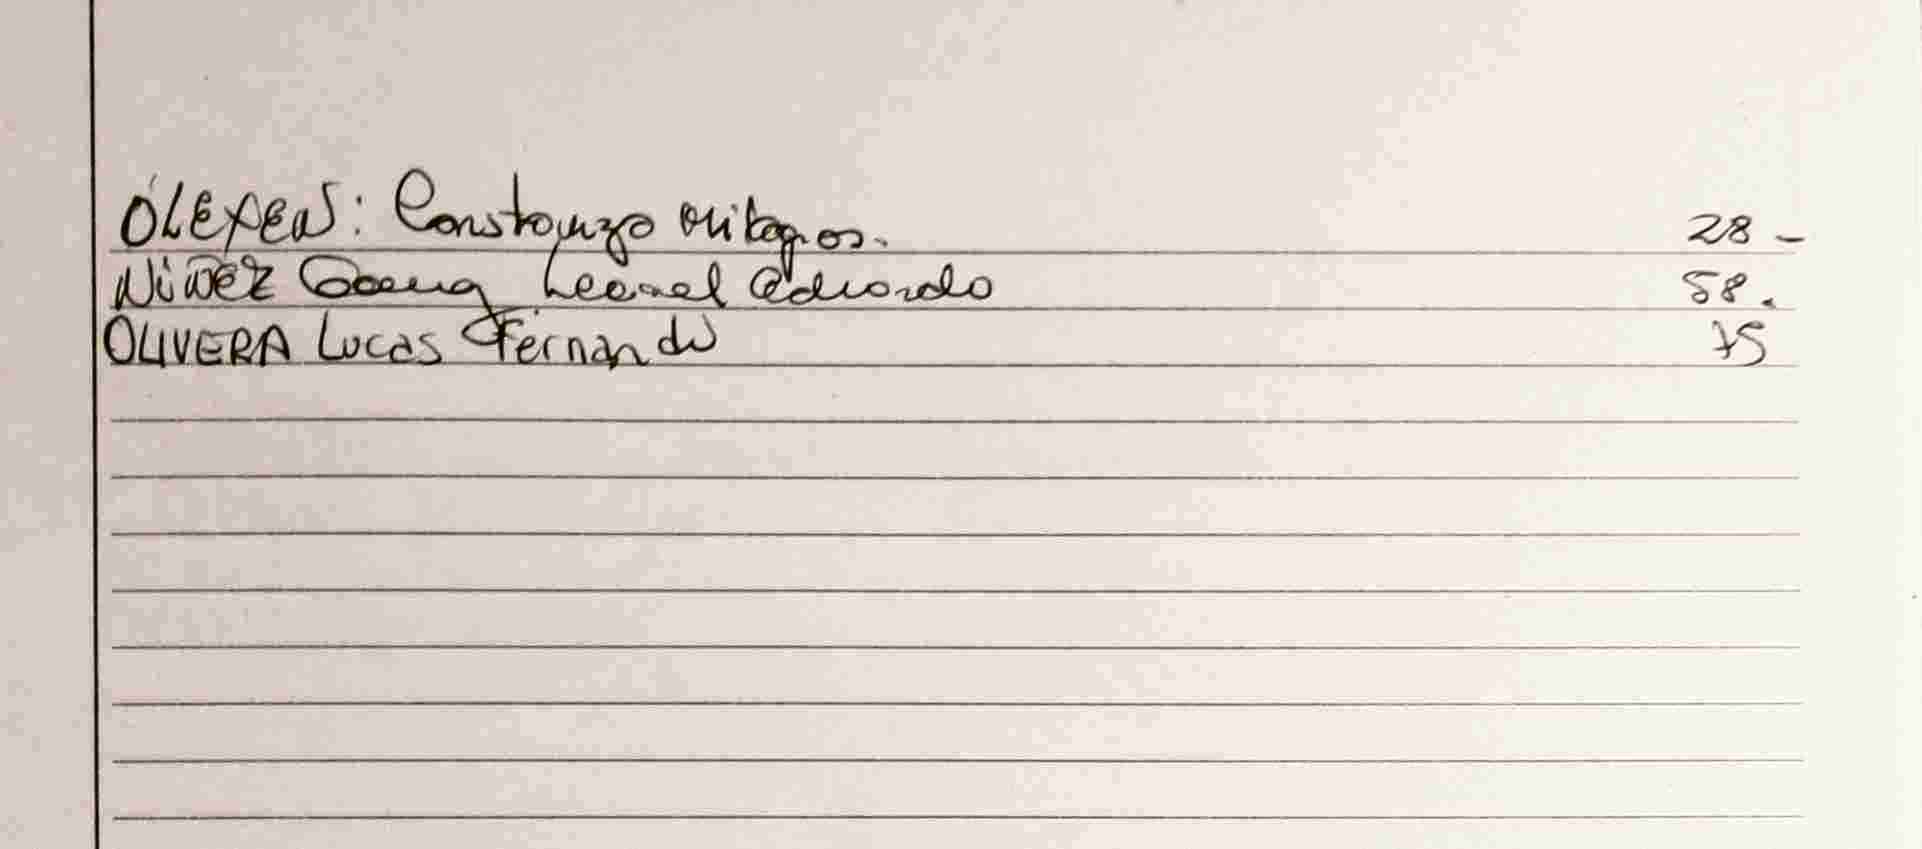 OLEXEN: Constanza Milagros. 28-
Nuñez Leonel Eduardo 58.
OLIVERA Lucas Fernando 75